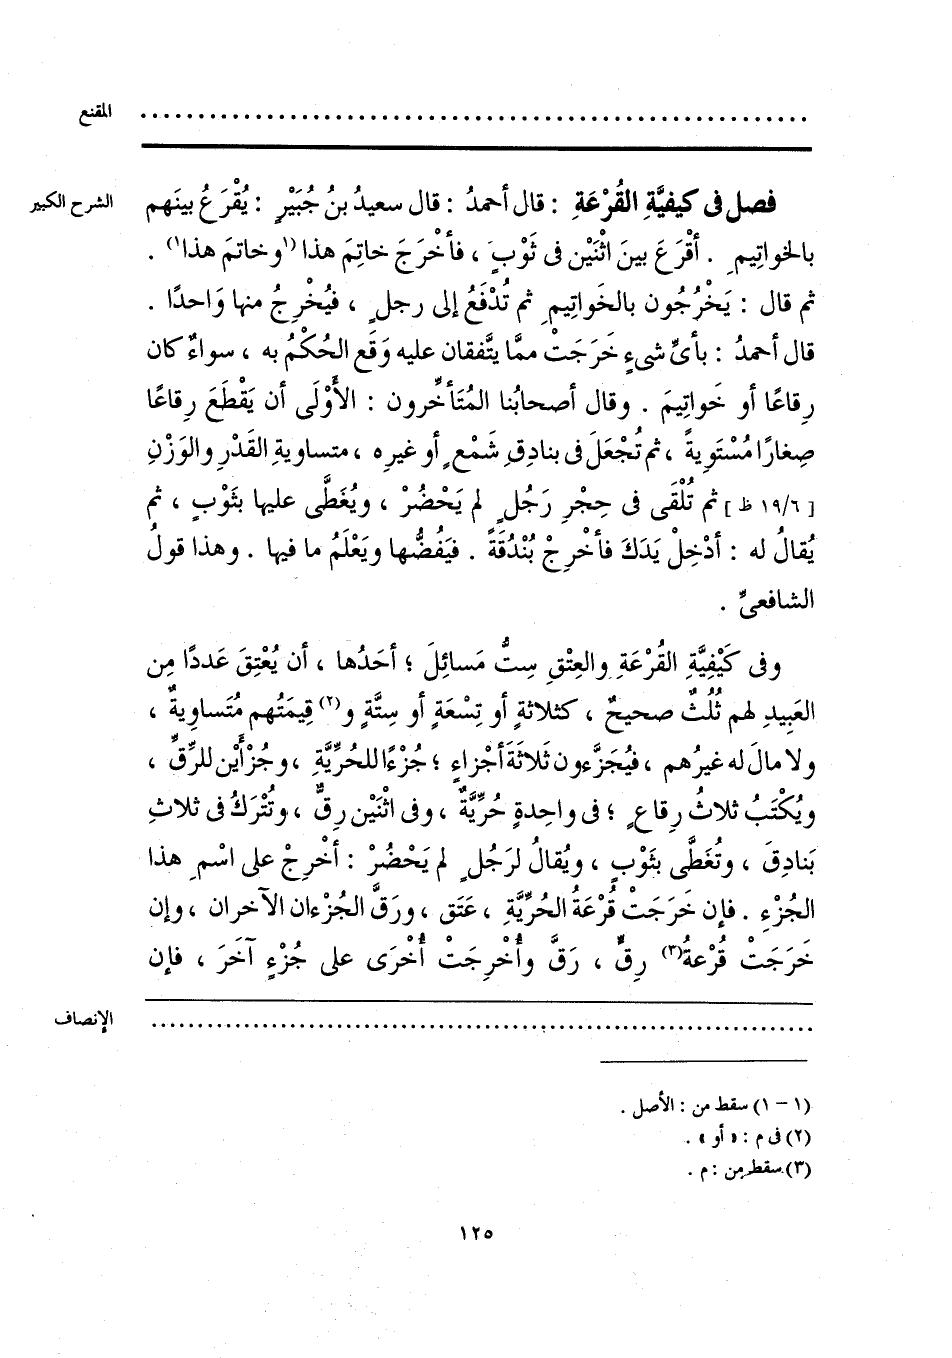 المقنع ................................................
الشرح الكبير
فصل فى كيفيَّةِ القُرْعَةِ : قال أحمدُ : قال سعيدُ بنُ جُبَيْرٍ : يُقْرَعُ بينَهم
بالخواتِيمِ . أقْرَعَ بينَ اثْنَيْن فى ثَوْبٍ ، فأخْرَجَ خاتِمَ هذا (١وخاتمَ هذا١) .
ثم قال : يَخْرُجُون بالخَواتِيمِ ثم تُدْفَعُ إلى رجلٍ ، فيُخْرِجُ منها وَاحدًا .
قال أحمدُ : بأىِّ شىءٍ خَرَجَتْ ممَّا يتَّفقان عليه وَقَع الحُكْمُ به ، سواءٌ كان
رِقاعًا أو خَواتِيمَ . وقال أصحابُنا المُتَأخِّرون : الأَوْلَى أن يَقْطَعَ رِقاعًا
صِغارًا مُسْتَوِيةً ، ثم تُجْعَلَ فى بنادِقِ شَمْعٍ أو غيرِه ، متساويةِ القَدْرِ والوَزْنِ
[ ١٩/٦ ظ ] ثم تُلْقَى فى حِجْرِ رَجُلٍ لم يَحْضُرْ ، ويُغَطَّى عليها بثَوْبٍ ، ثم
يُقالُ له : أدْخِلْ يَدَكَ فأخْرِجْ بُنْدُقَةً . فيَفُضُّها ويَعْلَمُ ما فيها . وهذا قولُ
الشافعىِّ .
وفى كَيْفِيَّةِ القُرْعَةِ والعِتْقِ سِتُّ مَسائِلَ ؛ أحَدُها ، أن يُعْتِقَ عَددًا مِن
العَبِيدِ لهم ثُلُثٌ صحيحٌ ، كثلاثةٍ أو تِسْعَةٍ أو سِتَّةٍ و(٢) قِيمَتُهم مُتَساوِيةٌ ،
ولا مالَ له غيرُهم ، فيُجَزَّءون ثَلاثَةَ أجْزاءٍ ؛ جُزْءًا للحُرِّيَّةِ ، وجُزْأَيْن للرِّقِّ ،
ويُكْتَبُ ثلاثُ رِقاعٍ ؛ فى واحِدةٍ حُرِّيَّةٌ ، وفى اثْنَيْن رِقٌّ ، وتُتْرَكُ فى ثلاثِ
بَنادِقَ ، وتُغَطَّى بثَوْبٍ ، ويُقالُ لرَجُلٍ لم يَحْضُرْ : أخْرِجْ على اسْمِ هذا
الجُزْءِ . فإن خَرَجَتْ قُرْعَةُ الحُرِّيَّةِ ، عَتَق ، ورَقَّ الجُزْءان الآخران ، وإن
خَرَجَتْ قُرْعةُ(٣) رِقٍّ ، رَقَّ وأُخْرِجَتْ أُخْرَى على جُزْءٍ آخَرَ ، فإن
الإنصاف ................................................
(١ – ١) سقط من : الأصل .
(٢) فى م : « أو » .
(٣) سقط من : م .
١٢٥